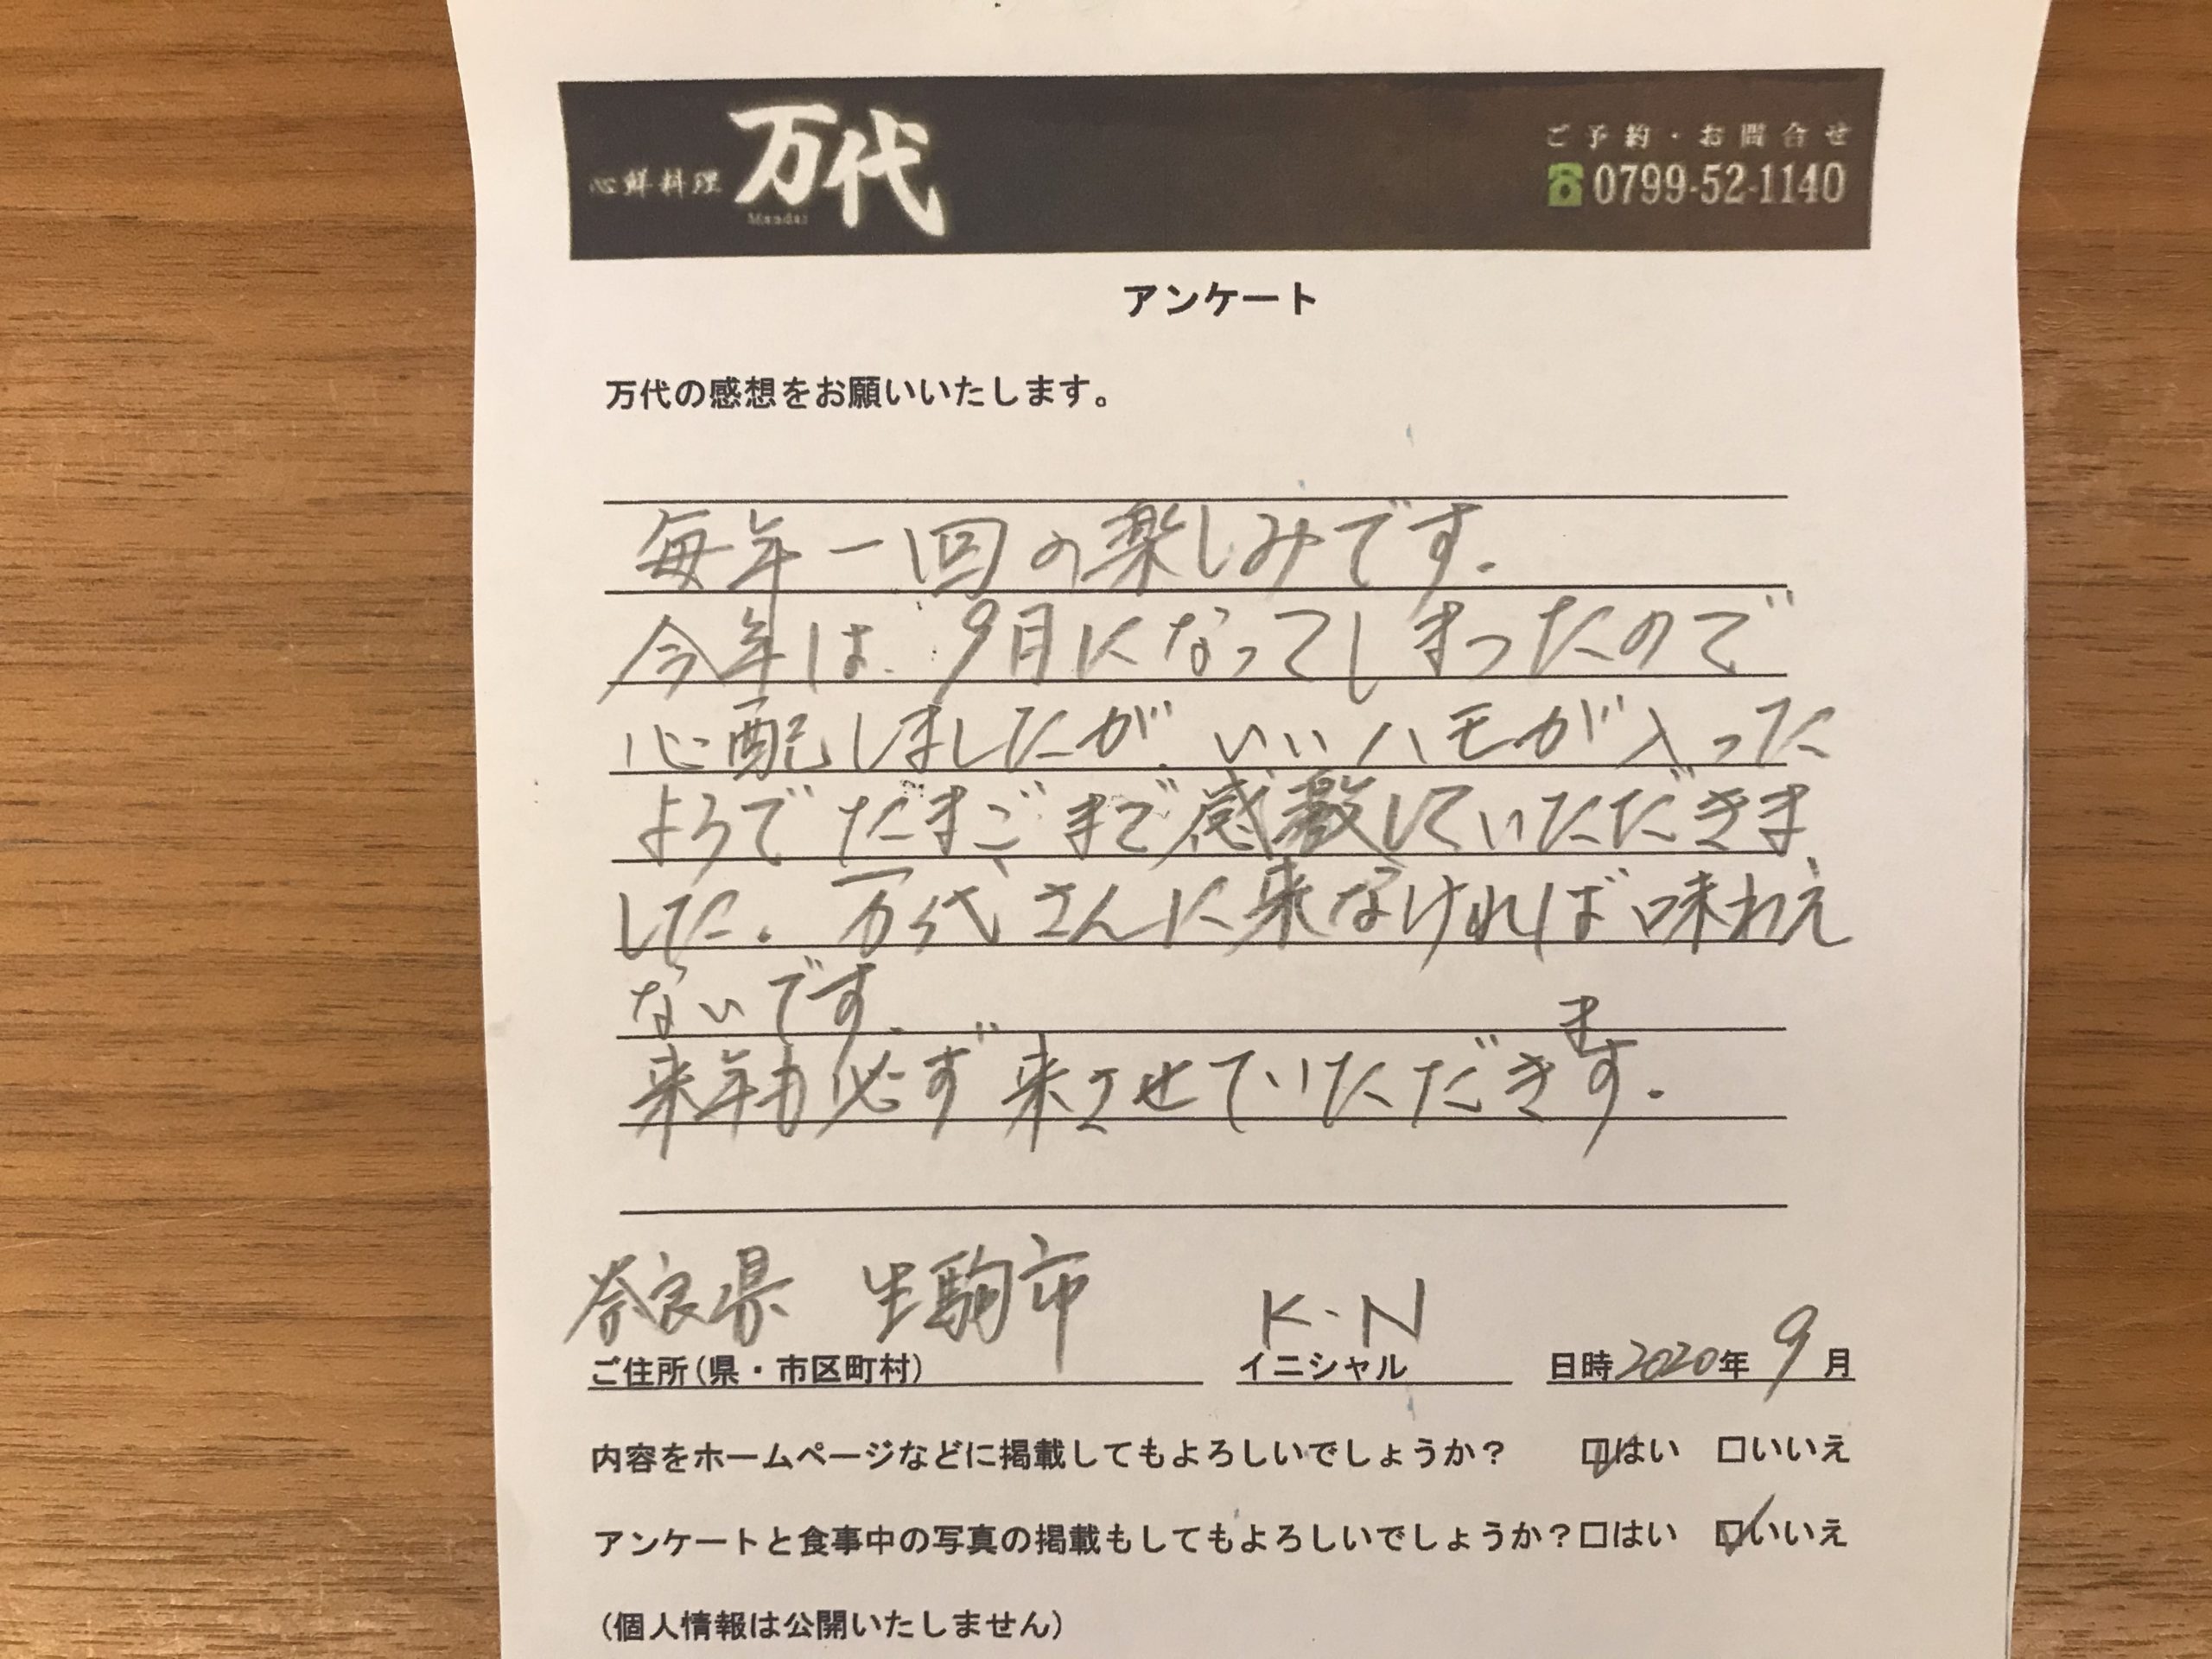 心鮮料理 万代
Mandai
ご予約・お問合せ
0799-52-1140
アンケート
万代の感想をお願いいたします。
毎年一回の楽しみです.
今年は、9月になってしまったので
心配しましたが、いいハモが入った
ようで だまごまで感激していただきま
した. 万代さんに来なければ味わえ
ないです.
来年も必ず来させていただきます.
奈良県 生駒市
K・N
ご住所(県・市区町村)
イニシャル
日時2020年9月
内容をホームページなどに掲載してもよろしいでしょうか? ☑はい □いいえ
アンケートと食事中の写真の掲載もしてもよろしいでしょうか?□はい ☑いいえ
(個人情報は公開いたしません)